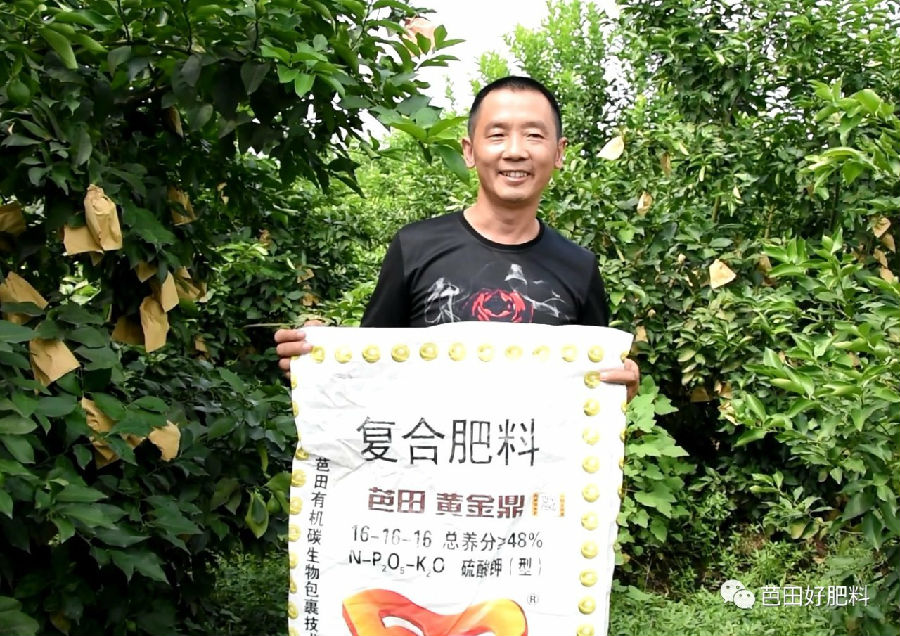 复合肥料
芭田 黄金鼎
16-16-16 总养分≥48%
N-P₂O₅-K₂O 硫酸钾（型）
®
芭田有机碳生物包裹技术
芭田好肥料